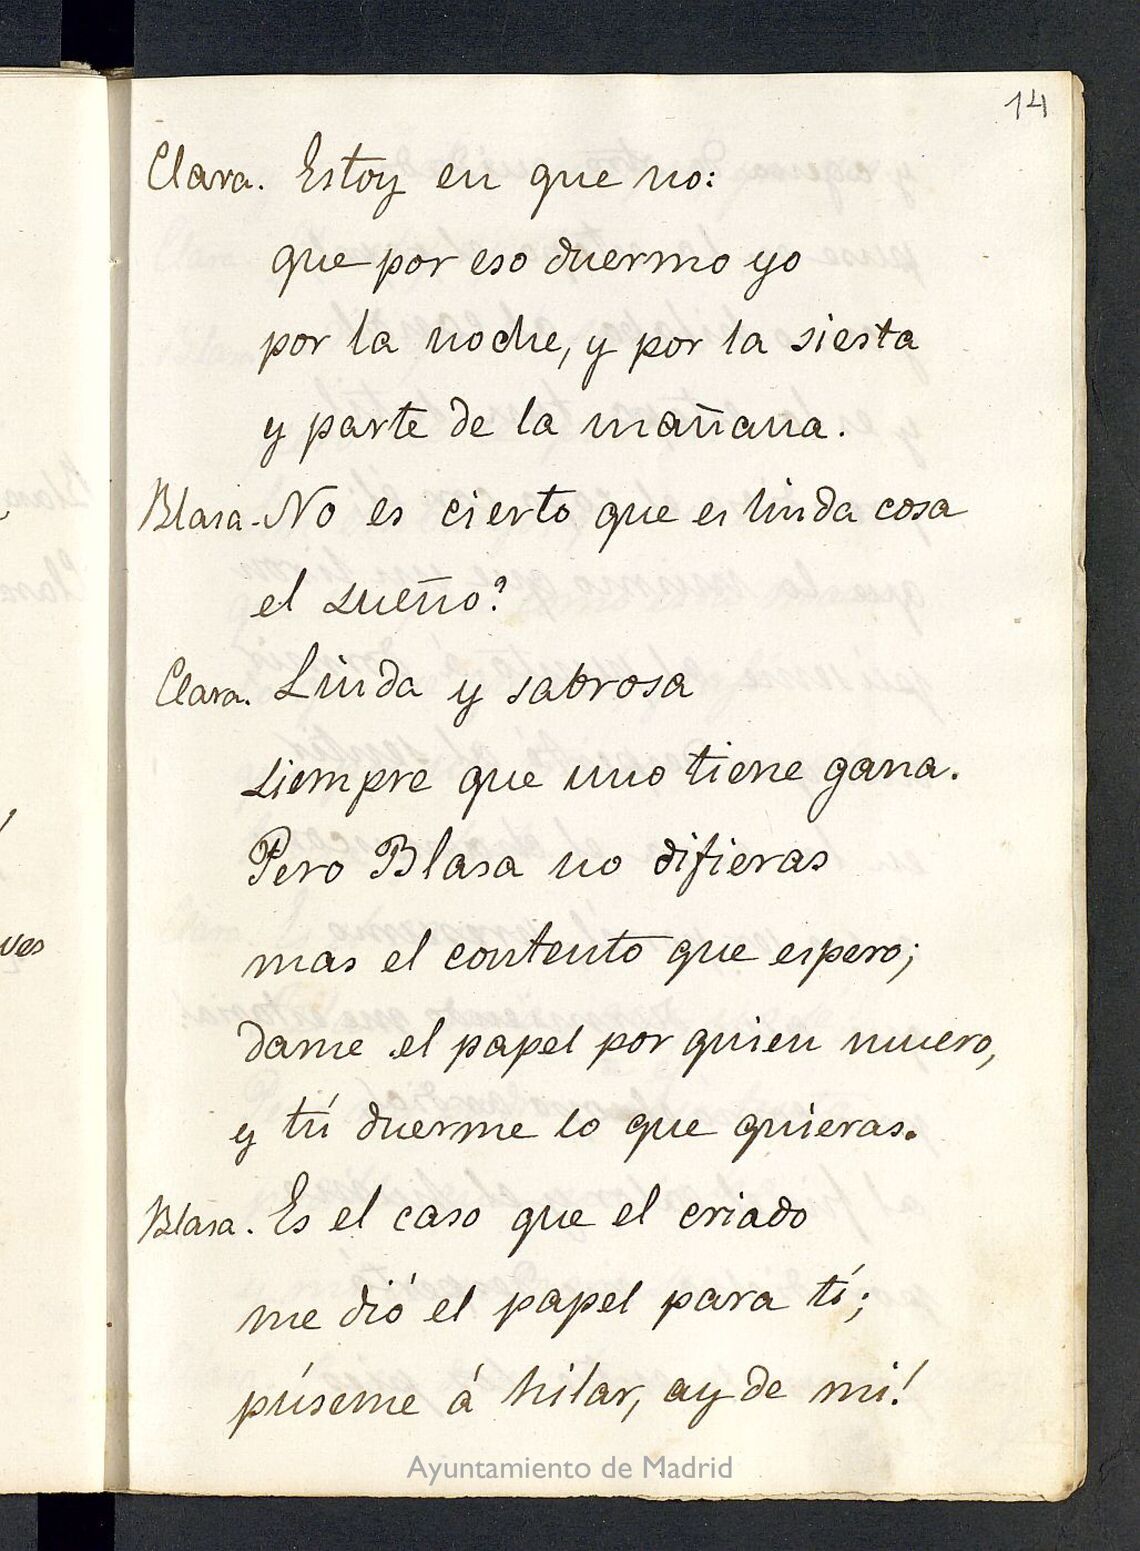 14
Clara. Estoy en que no:
que por eso duermo yo
por la noche, y por la siesta
y parte de la mañana.
Blasa - No es cierto que es linda cosa
el sueño?
Clara. Linda y sabrosa
siempre que uno tiene gana.
Pero Blasa no difieras
mas el contento que espero;
dame el papel por quien muero,
y tú duerme lo que quieras.
Blasa. Es el caso que el criado
me dió el papel para tí;
púseme á hilar, ay de mi!
Ayuntamiento de Madrid